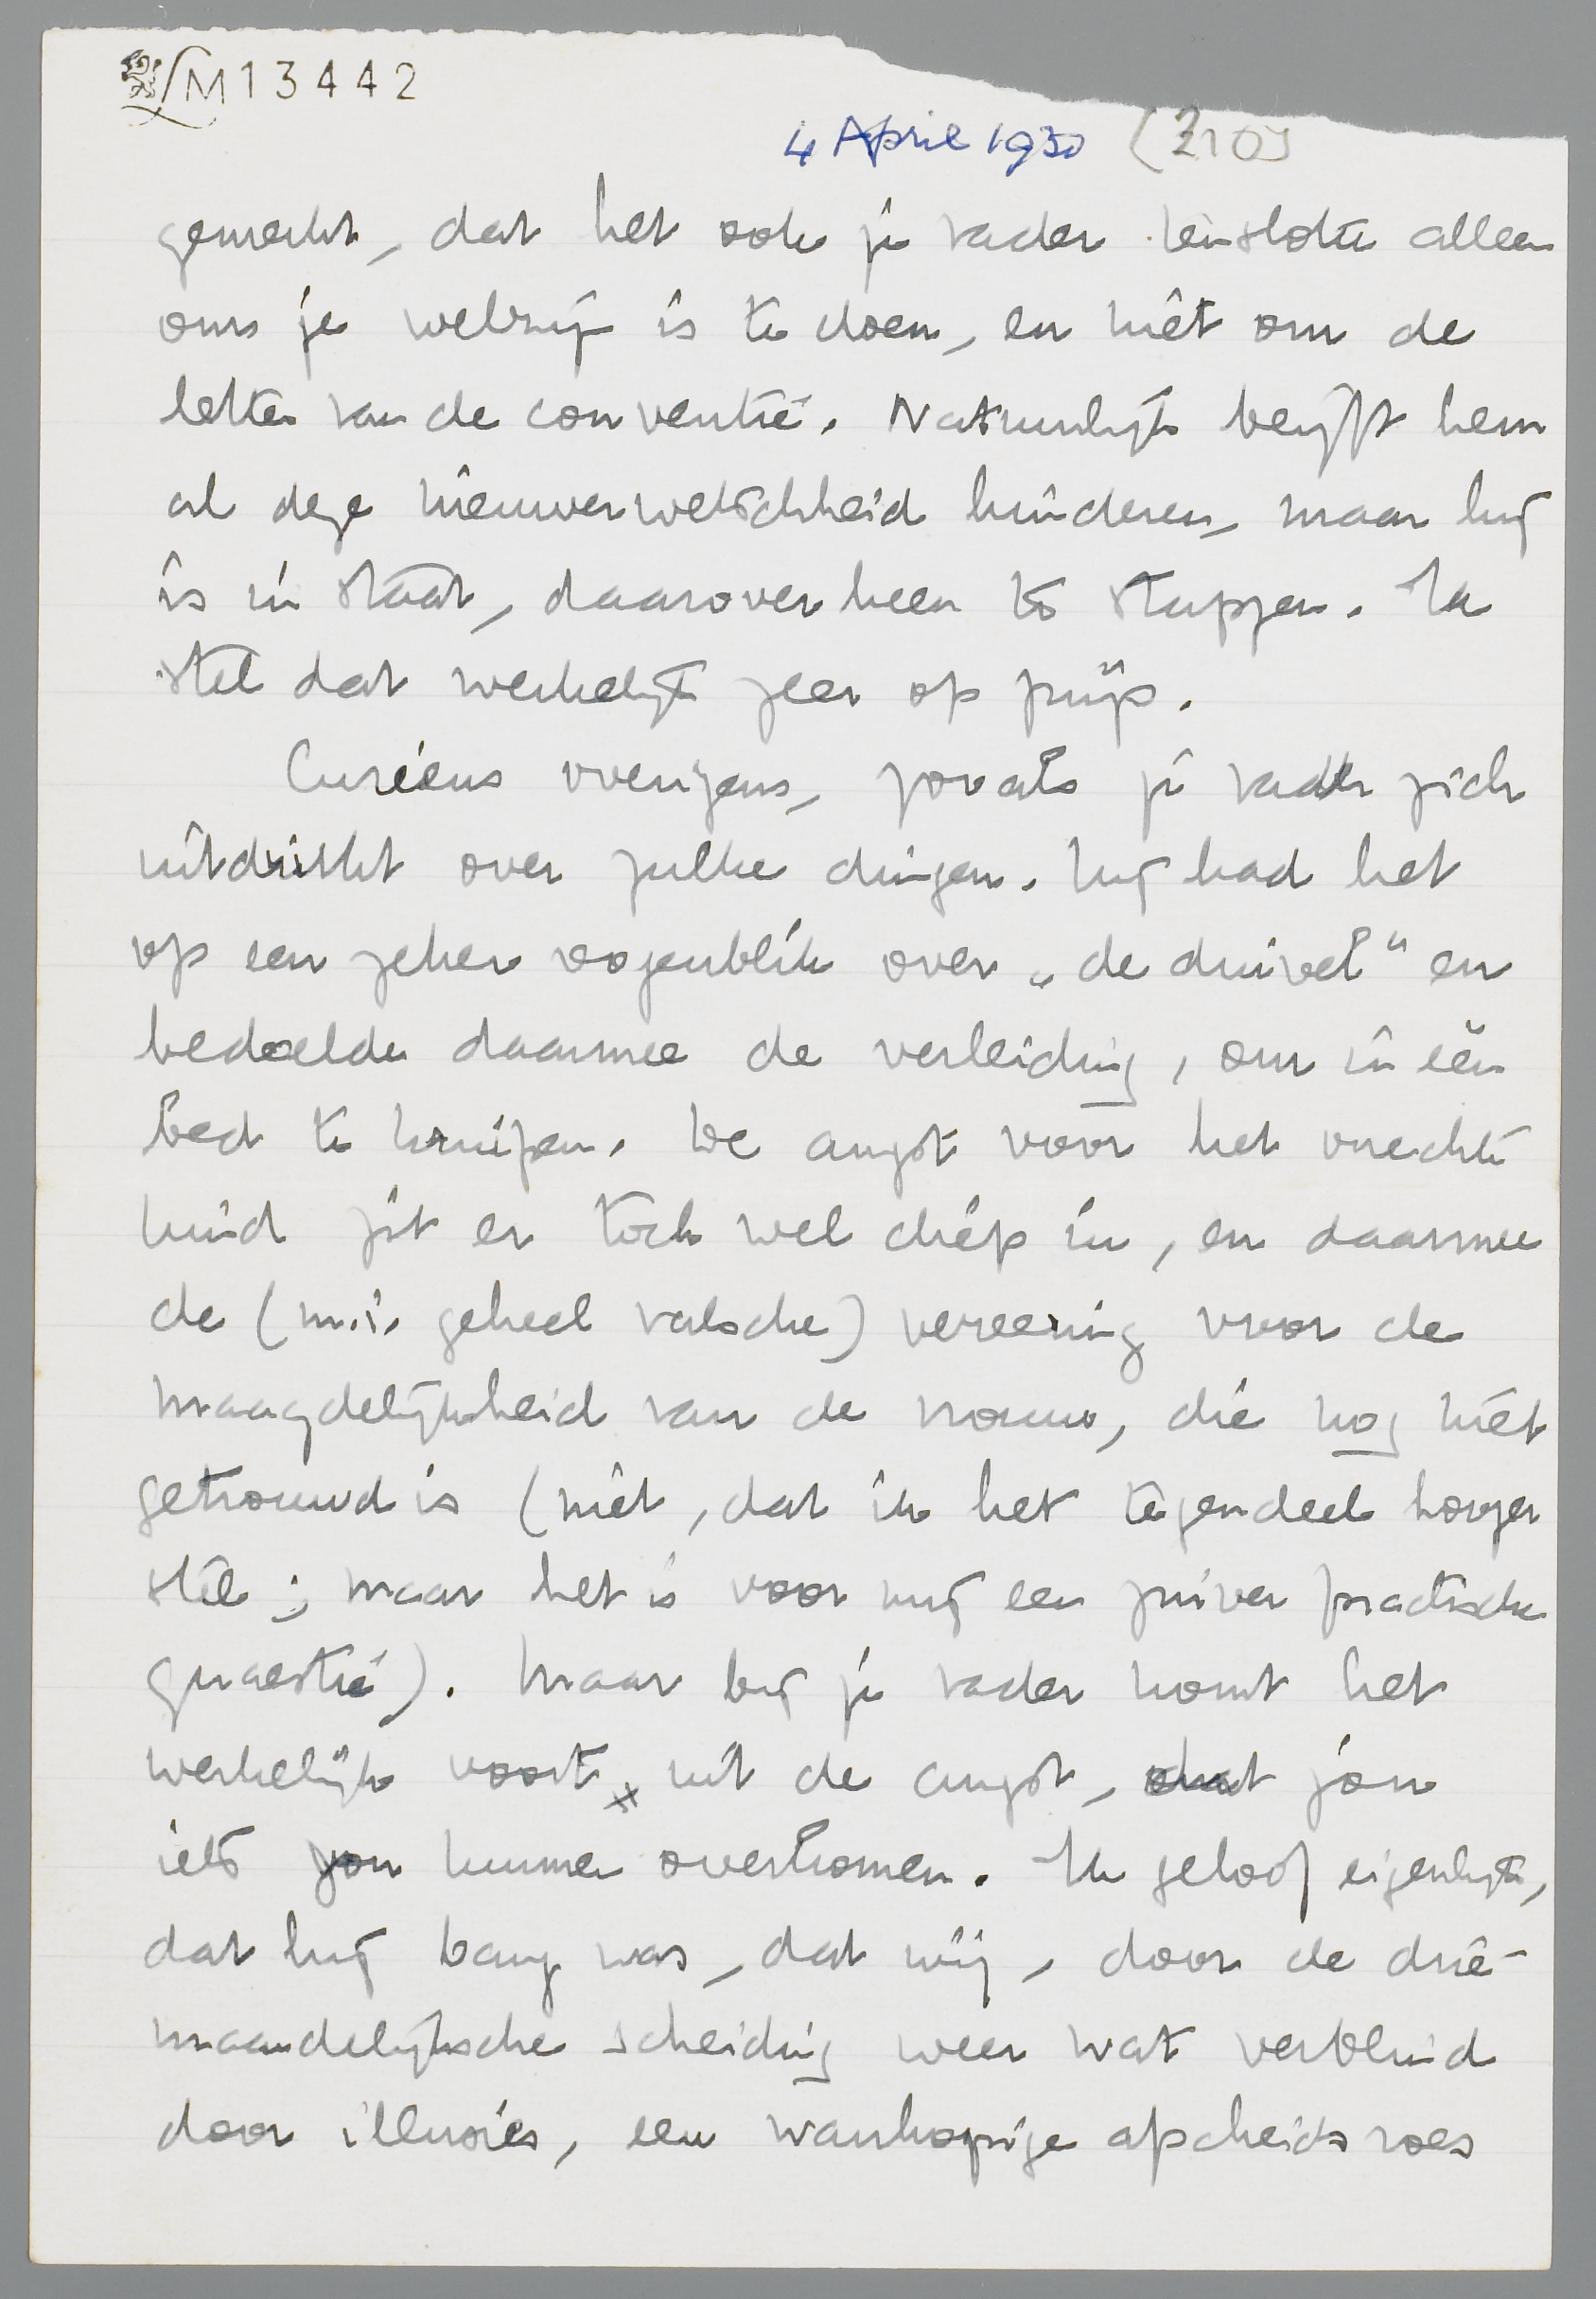 M13442
4 April 1930 (210)
gemerkt, dat het ook je vader tenslotte alleen
om je welzijn is te doen, en niet om de
letter van de conventie. Natuurlijk blijft hem
al deze nieuwerwetschheid hinderen, maar hij
is in staat, daaroverheen te stappen. Ik
stel dat werkelijk zeer op prijs.
Curieus overigens, zooals je vader zich
uitdrukt over zulke dingen. Hij had het
op een zeker oogenblik over „de duivel" en
bedoelde daarmee de verleiding, om in één
bed te kruipen. De angst voor het onechte
kind zit er toch wel diep in, en daarmee
de (m.i. geheel valsche) vereering voor de
maagdelijkheid van de vrouw, die nog niet
getrouwd is (niet, dat ik het tegendeel hooger
stel; maar het is voor mij een zuiver practische
quaestie). Maar bij je vader komt het
werkelijk voort uit de angst, dat jou
iets zou kunnen overkomen. Ik geloof eigenlijk,
dat hij bang was, dat wij, door de drie-
maandelijksche scheiding weer wat verblind
door illusies, een wanhopige afscheidsroes